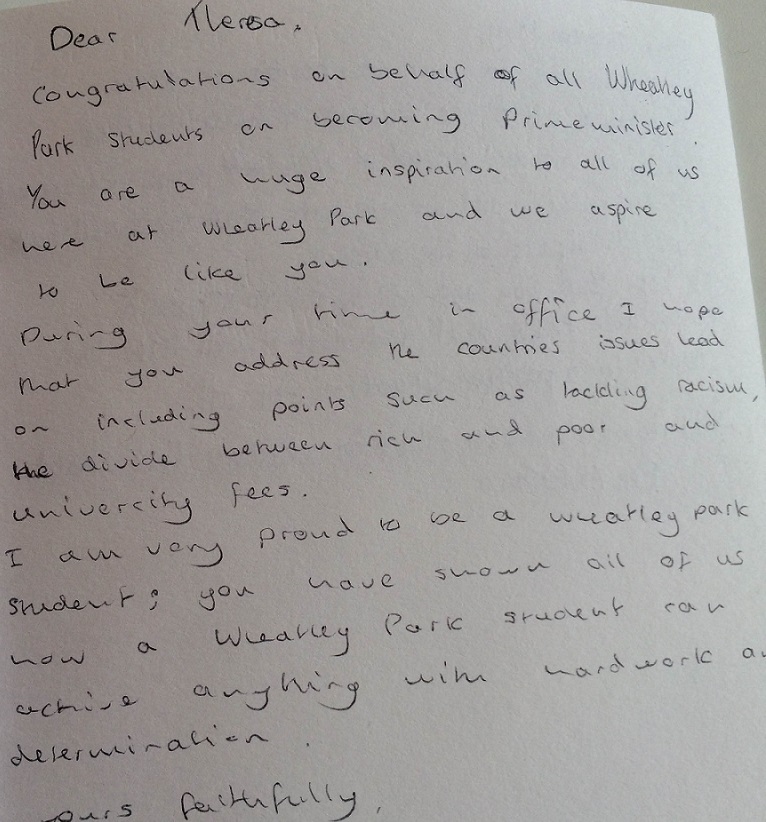 Dear Theresa,
Congratulations on behalf of all Wheatley
Park students on becoming Primeminister.
You are a huge inspiration to all of us
here at Wheatley Park and we aspire
to be like you.
During your time in office I hope
that you address the countries issues lead
on including points such as tackling racism,
the divide between rich and poor and
univercity fees.
I am very proud to be a wheatley park
student; you have shown all of us
how a Wheatley Park student can
achive anything with hardwork
determination.
ours faithfully,